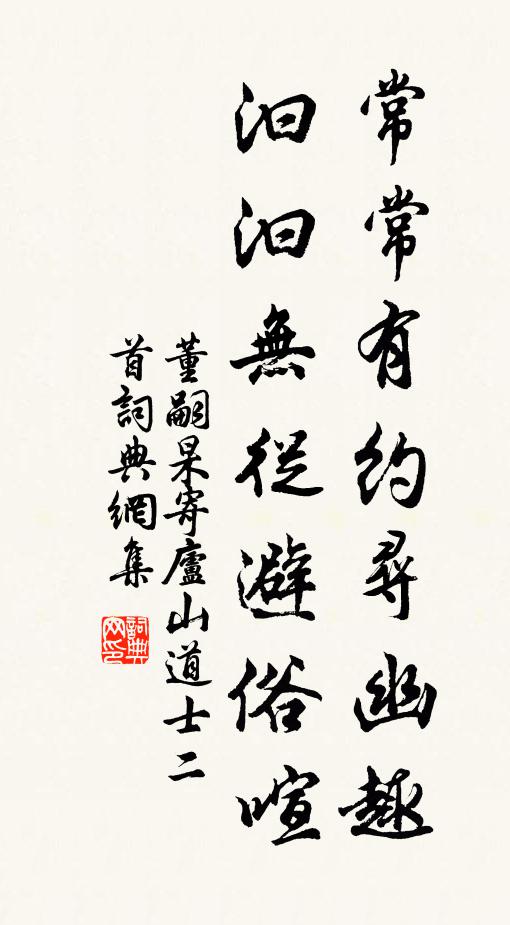 常常有約尋幽趣
汩汩無從避俗喧
董嗣杲寄廬山道士二
首詞典網集
詞典
網印